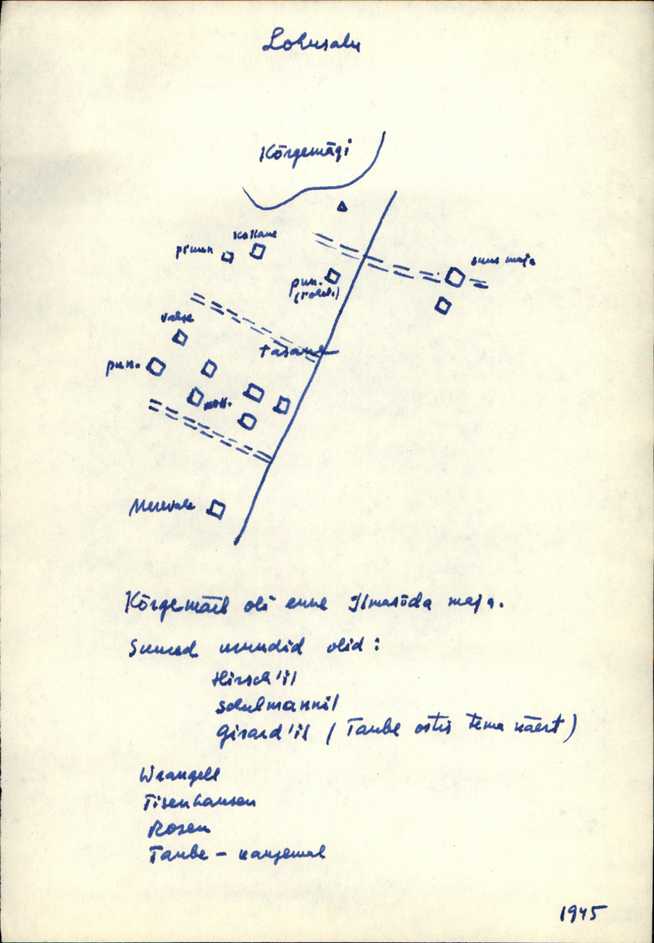 Lohusalu
Kõrgemägi
kollane
pruun
suur maja
pun.
valge
tasane
pun.
koll.
Merevale
Kõrgemäel oli enne Ilmasõda maja.
Suured krundid olid:
Hirsch'il
Schulmannil
Girard'il (Taube ostis tema käest)
Wrangell
Tisenhausen
Rosen
Taube – kaugemal
1945